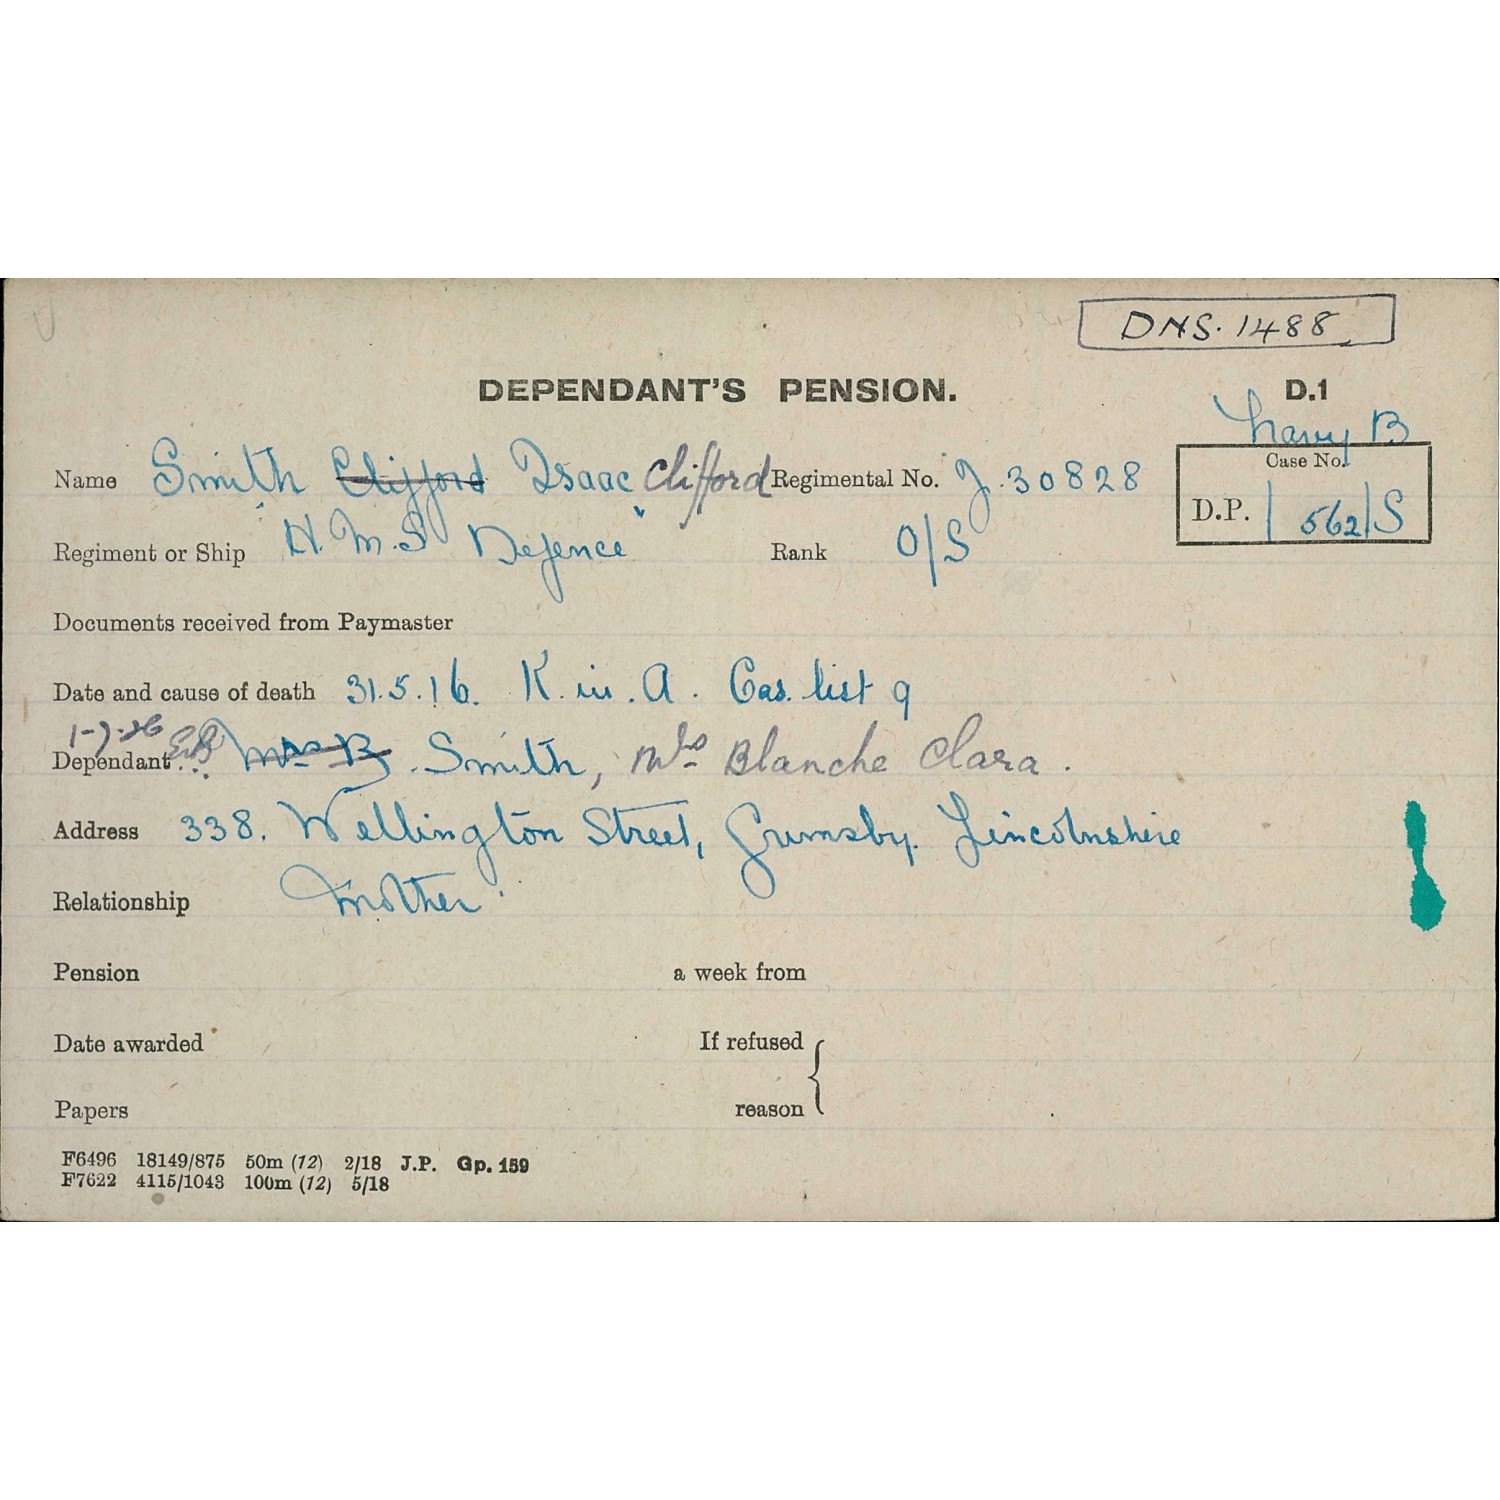 DNS. 1488
DEPENDANT'S PENSION. D.1
Navy B
Name Smith Clifford Isaac Clifford Regimental No. J.30828 Case No.
D.P. | 562/S
Regiment or Ship "H.M.S Defence" Rank O/S
Documents received from Paymaster
Date and cause of death 31.5.16. K. in. A. Cas. list 9
1-7-26
Dependant Mrs B. Smith, Mrs Blanche Clara.
Address 338. Wellington Street, Grimsby. Lincolnshire
Relationship Mother.
Pension a week from
Date awarded If refused
Papers reason
F6496 18149/875 50m (12) 2/18 J.P. Gp. 159
F7622 4115/1043 100m (12) 5/18